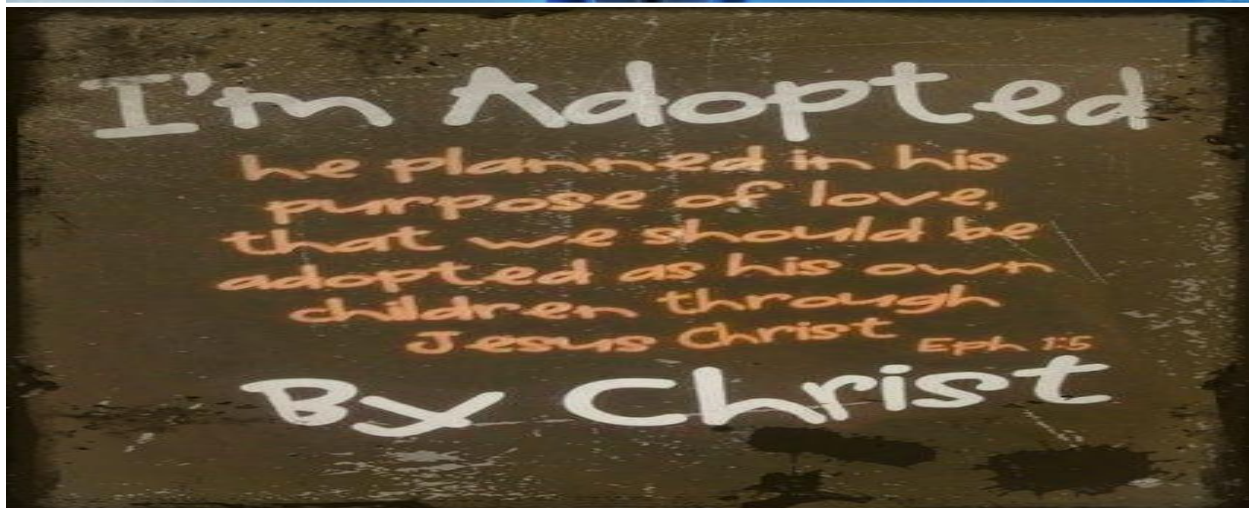 I'm Adopted
he planned in his
purpose of love,
that we should be
adopted as his own
children through
Jesus Christ Eph 1:5
By Christ